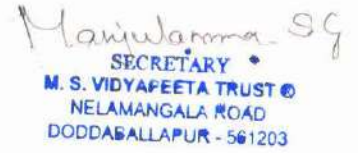 Manjulamma. S G
SECRETARY
M. S. VIDYAPEETA TRUST ®
NELAMANGALA ROAD
DODDABALLAPUR - 561203